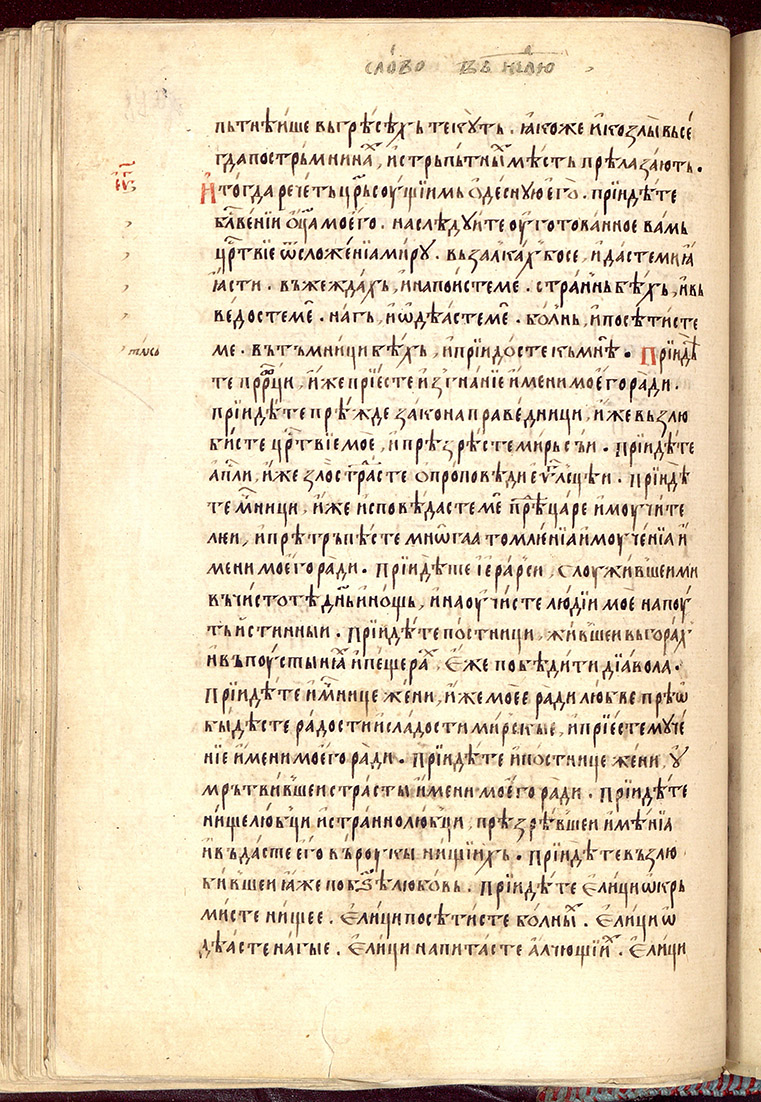 слово въ нⷣелю
пътнѣише въ грѣсѣхъ текꙋть. ꙗкоже и козлы въсе
гда пострьмнинаⷯ, и стрьпътныⷯ мѣстъ прѣлазають.
еⷢ҇ѵ
И тогда речеть цр҃ь соущїимь ѡдесную его. прїидѣте
блⷭ҇вени оц҃а моего. наслѣдуите оуготованное вамь
црⷭ҇твїе ѿ сложенїа мирꙋ. възалкаⷯ бо се, и дасте ми ꙗ
ꙗсти. въжеждахъ, и напоисте ме. страннь бѣхъ, и въ
ведосте меⷩ҇. нагъ, и ѡдѣасте меⷩ҇. болнь, и посѣтисте
такь
ме. вътъмници бѣхъ, и прїидосте къ мнѣ. Прїидѣ
те прⷪ҇рци, иже прїесте изгнанїе имени моего ради.
прїидѣте прѣжде закона праведници, иже възлю
бисте црⷭ҇твїе мое, и прѣзрѣсте мирь съи. прїидѣте
апⷭ҇ли, иже злострⷭ҇асте ѡ проповѣди еѵⷢ҇лсцѣи. прїидѣ
те мⷱ҇ници, иже исповѣдасте меⷩ҇ прⷣѣ царе и моучите
леи, и прѣтръпѣсте мнѡгаа томленїа и моученїа и
мени моего ради. прїидѣте їерарси, служившеи ми
въ чистотѣ днь и нощь, и наоучисте людїи мое на поу
ть истинныи. прїидѣте постници, жившеи въ гораⷯ
и въ поустынꙗⷯ и пещераⷯ, еже побѣдити дїавола.
прїидѣте и мⷱ҇нице жени, иже моее ради любве прѣѡ
быдѣсте радости и сладости мирскые, и прїесте муче
нїе имени моего ради. прїидѣте и постнице жени, у
мрътвившеи страсты имени моего ради. прїидѣте
нищелюбци и страннолюбци, прѣзрѣвшеи имѣнїа
и въдасте его въ роукы нищїихъ. прїидѣте възлю
бившеи ꙗже по бз҃ѣ любовь. прїидѣте елици ѡкрь
мисте нищее. елици посѣтисте болныⷯ. елици ѡ
дѣасте нагые. елици напитасте алчющїиⷯ. елици